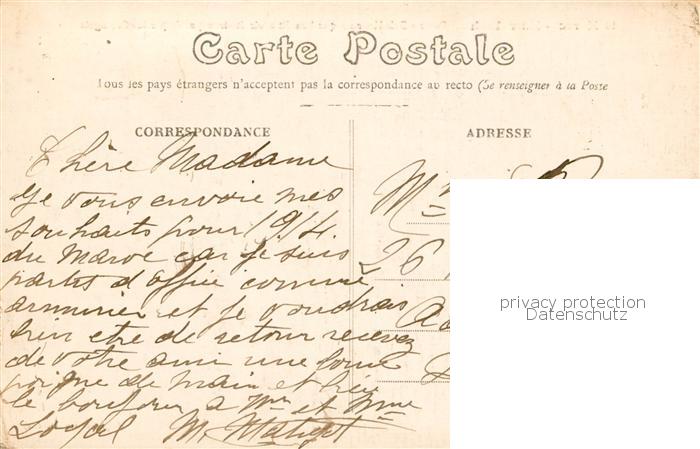 Carte Postale
Tous les pays étrangers n'acceptent pas la correspondance au recto (Se renseigner à la Poste
CORRESPONDANCE
ADRESSE
Chère Madame
Je vous envoie mes
souhaits pour 1914.
du Maroc car je suis
partis d office comme
armurier et je voudrais
bien etre de retour recevez
de votre ami une bonne
poigne de main et bien
le bonjour a Mr et Mme
Loyal M.
26
privacy protection
Datenschutz